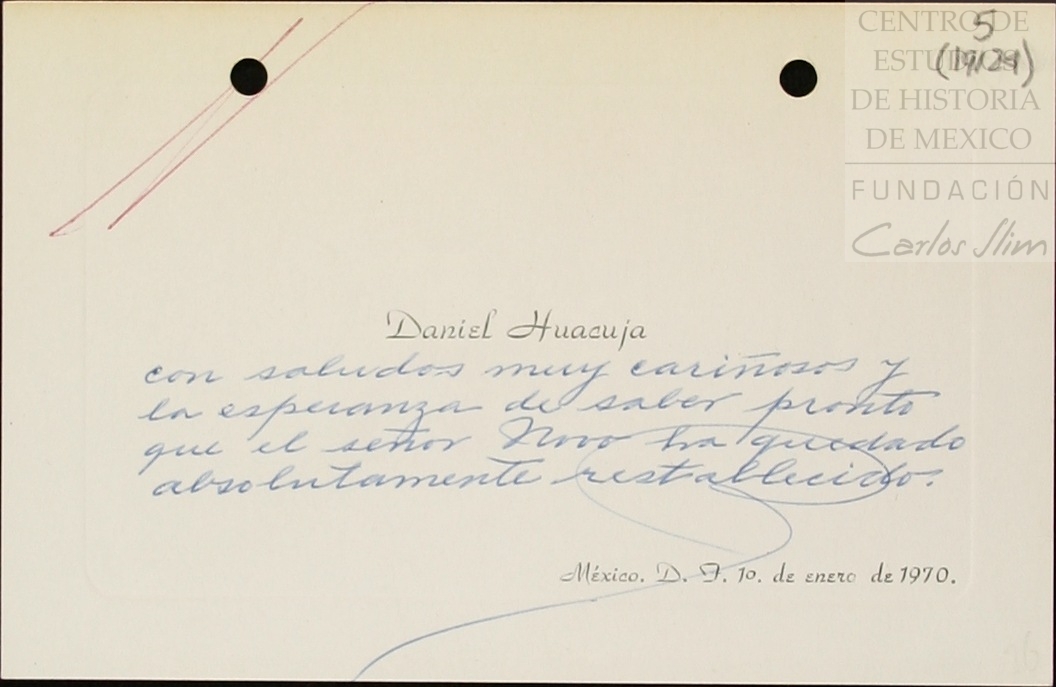 CENTRO DE
ESTUDIOS
DE HISTORIA
DE MEXICO
FUNDACIÓN
Carlos Slim
5
Daniel Huacuja
con saludos muy cariñosos y
la esperanza de saber pronto
que el señor Novo ha quedado
absolutamente restablecido.
México, D. F. 1o. de enero de 1970.